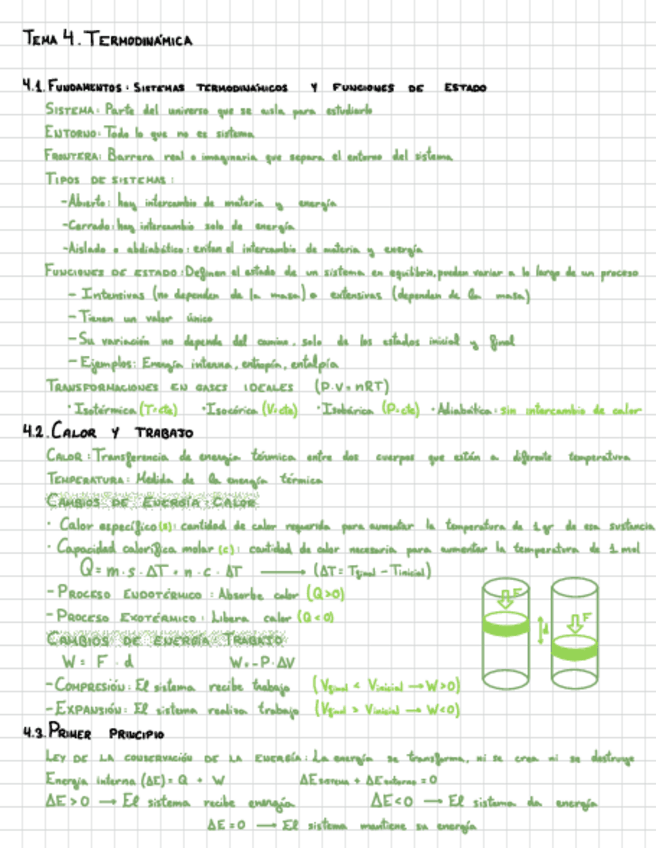 TEMA 4. TERMODINÁMICA
4.1. FUNDAMENTOS: SISTEMAS TERMODINÁMICOS Y FUNCIONES DE ESTADO
SISTEMA: Parte del universo que se aisla para estudiarlo
ENTORNO: Todo lo que no es sistema
FRONTERA: Barrera real o imaginaria que separa el entorno del sistema
TIPOS DE SISTEMAS:
-Abierto: hay intercambio de materia y energía
-Cerrado: hay intercambio solo de energía
-Aislado o abdiabático: evitan el intercambio de materia y energía
FUNCIONES DE ESTADO: Definen el estado de un sistema en equilibrio, pueden variar a lo largo de un proceso
- Intensivas (no dependen de la masa) o extensivas (dependen de la masa)
- Tienen un valor único
- Su variación no depende del camino, solo de los estados inicial y final
- Ejemplos: Energía interna, entropía, entalpía
TRANSFORMACIONES EN GASES IDEALES (P·V=nRT)
· Isotérmica (T=cte) · Isocórica (V=cte) · Isobárica (P=cte) · Adiabática: sin intercambio de calor
4.2. CALOR Y TRABAJO
CALOR: Transferencia de energía térmica entre dos cuerpos que están a diferente temperatura
TEMPERATURA: Medida de la energía térmica
CAMBIOS DE ENERGÍA: CALOR
· Calor específico (s): cantidad de calor requerida para aumentar la temperatura de 1 gr de esa sustancia
· Capacidad calorífica molar (c): cantidad de calor necesaria para aumentar la temperatura de 1 mol
Q = m · s · ΔT = n · c · ΔT → (ΔT = Tfinal - Tinicial)
- PROCESO ENDOTÉRMICO: Absorbe calor (Q>0)
- PROCESO EXOTÉRMICO: Libera calor (Q<0)
F F
d
CAMBIOS DE ENERGÍA: TRABAJO
W = F · d W = -P · ΔV
- COMPRESIÓN: El sistema recibe trabajo (Vfinal < Vinicial → W>0)
- EXPANSIÓN: El sistema realiza trabajo (Vfinal > Vinicial → W<0)
4.3. PRIMER PRINCIPIO
LEY DE LA CONSERVACIÓN DE LA ENERGÍA: La energía se transforma, ni se crea ni se destruye
Energía interna (ΔE) = Q + W ΔEsistema + ΔEentorno = 0
ΔE > 0 → El sistema recibe energía ΔE < 0 → El sistema da energía
ΔE = 0 → El sistema mantiene su energía